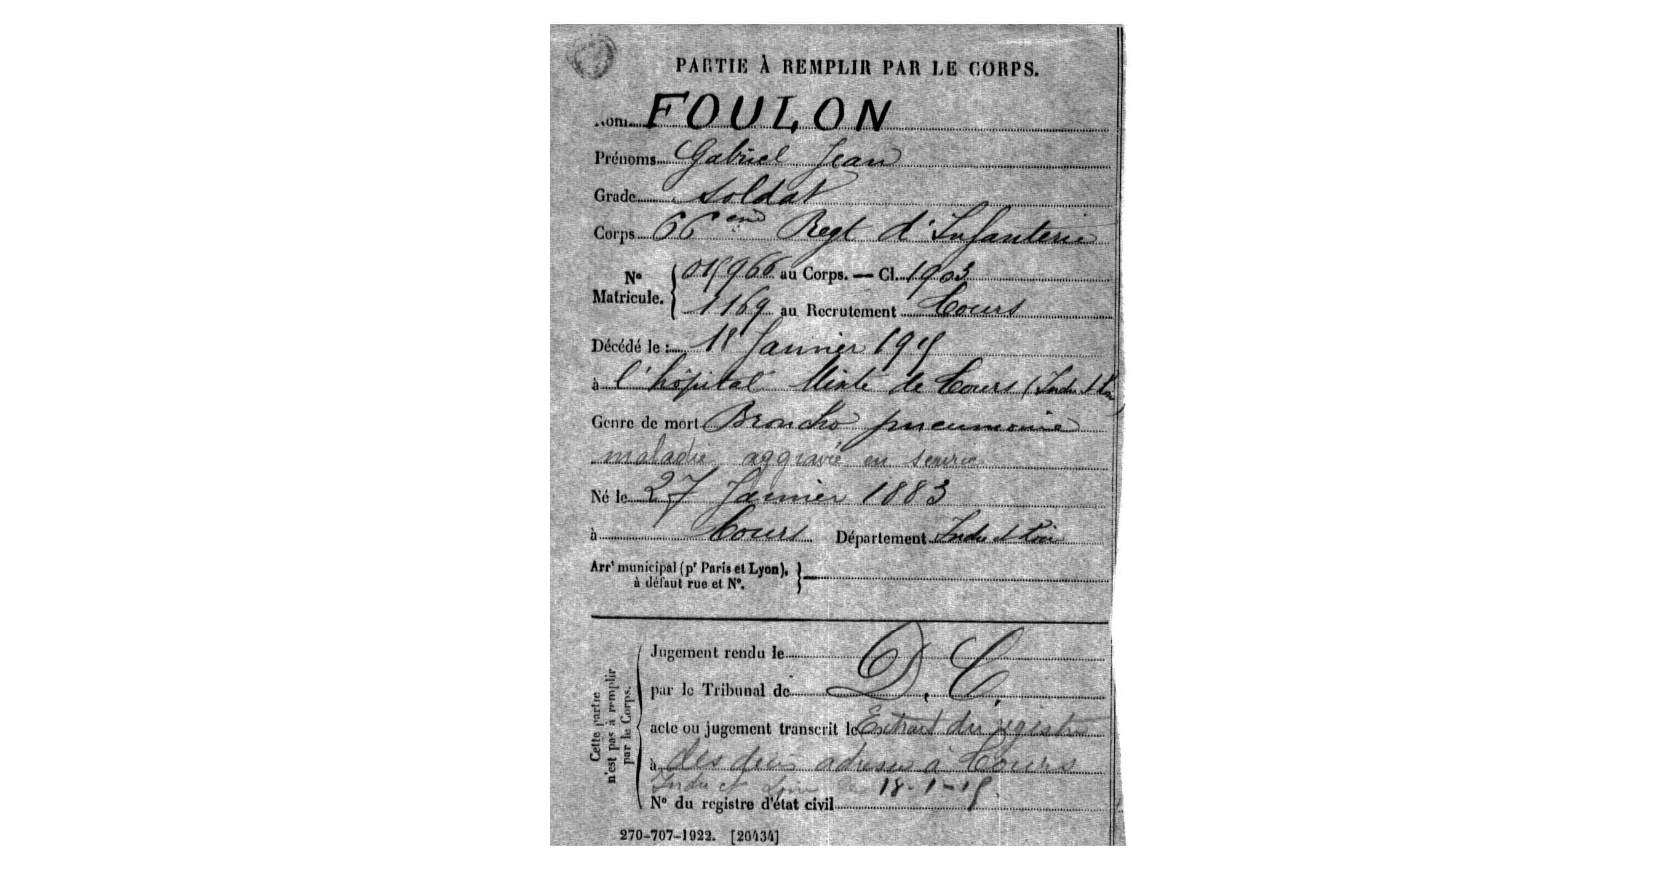 PARTIE À REMPLIR PAR LE CORPS.
Nom FOULON
Prénoms Gabriel Jean
Grade soldat
Corps 66eme Regt d'Infanterie
No Matricule. { 015966 au Corps. — Cl. 1903
1169 au Recrutement Tours
Décédé le : 18 Janvier 1915
à l'hôpital Mixte de Tours (Indre et Loire)
Genre de mort Broncho pneumonie
maladie aggravée en service
Né le 27 Janvier 1883
à Tours Département Indre et Loire
Arrt municipal (pr Paris et Lyon), à défaut rue et No. }
Cette partie n'est pas à remplir par le Corps.
Jugement rendu le D.C.
par le Tribunal de
acte ou jugement transcrit le Extrait du registre
à des décès adressé à Tours
Indre et Loire le 18-1-15
No du registre d'état civil
270-707-1922. [26434]